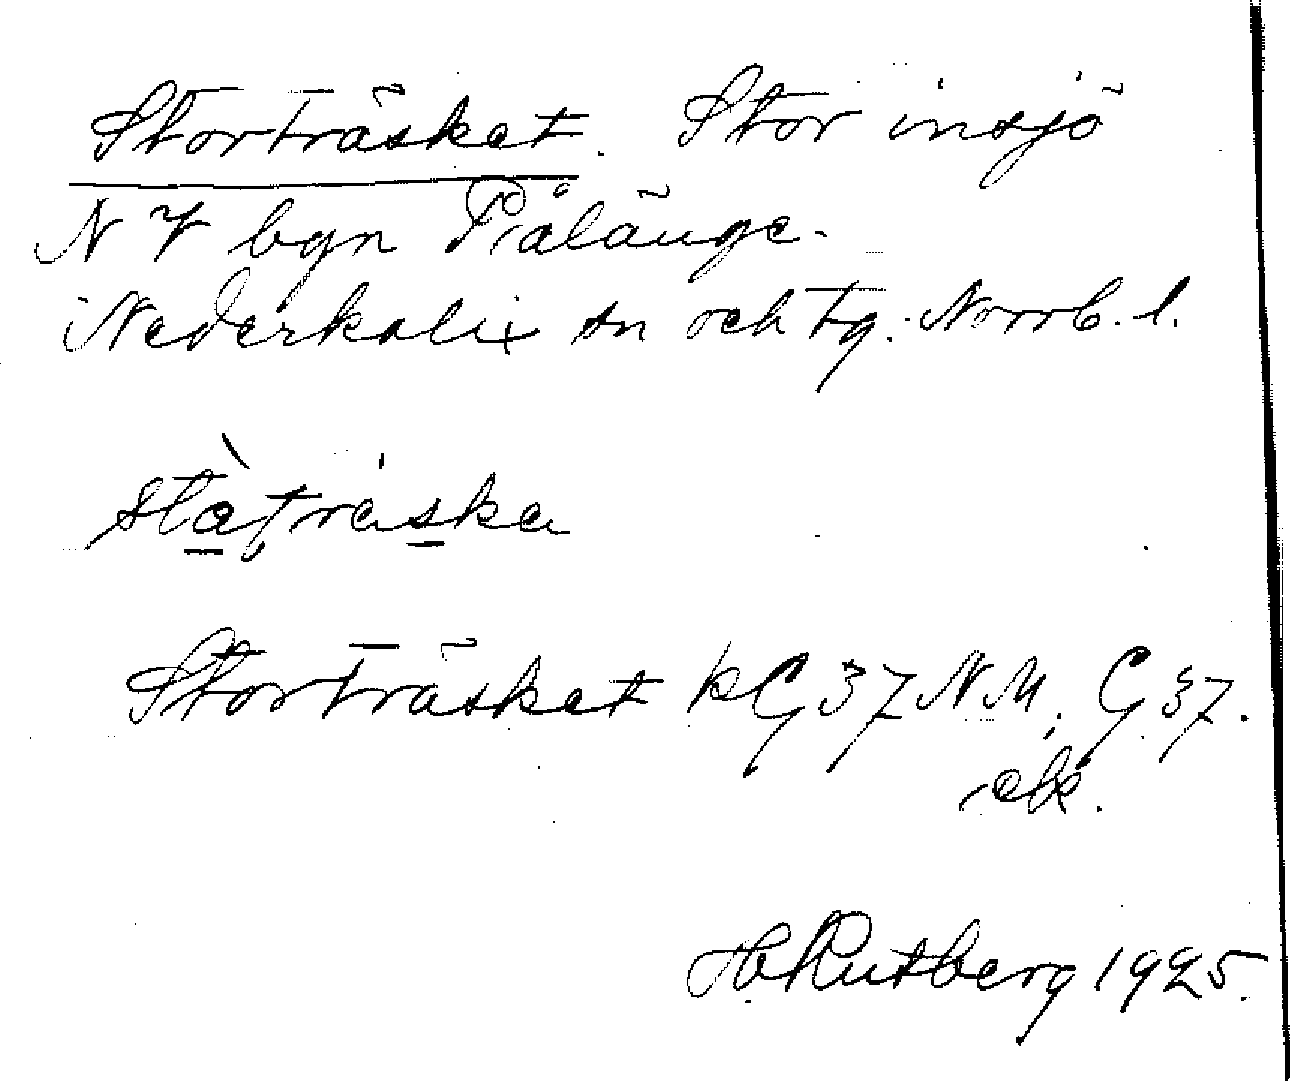 Storträsket. Stor insjö
NV bgn Pålänge.
Nederkalix sn och tg. Norrb. l.
stàträska
Storträsket kG37NM, G37.
ek.
H. Rutberg 1925.